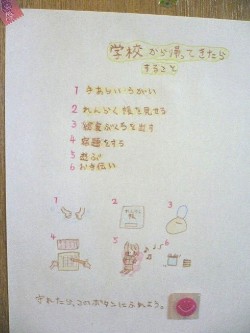 学校から帰ってきたら
すること
1 手あらい、うがい
2 れんらく帳を見せる
3 給食ぶくろを出す
4 宿題をする
5 遊ぶ
6 お手伝い
1
2
3
れんらく帳
4
5
6